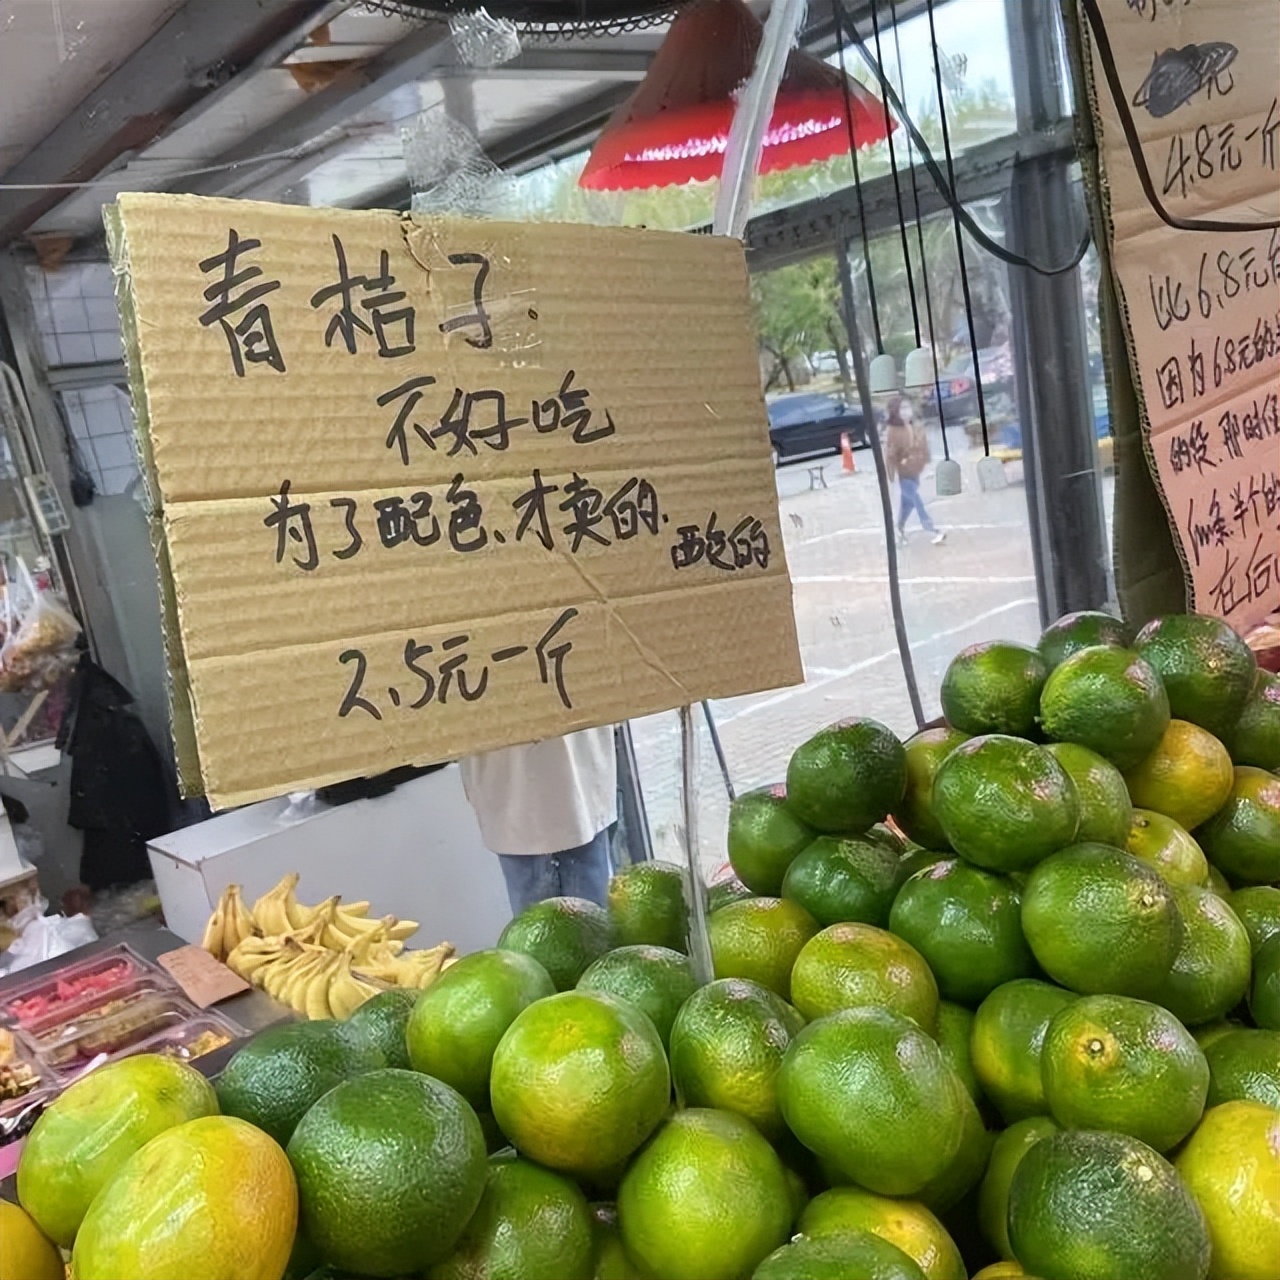 青桔子.
不好吃
为了配色、才卖的.
酸的
2.5元一斤
元
4.8元一斤
比6.8元
因为6.8元的
的货.那时候
半个的
在